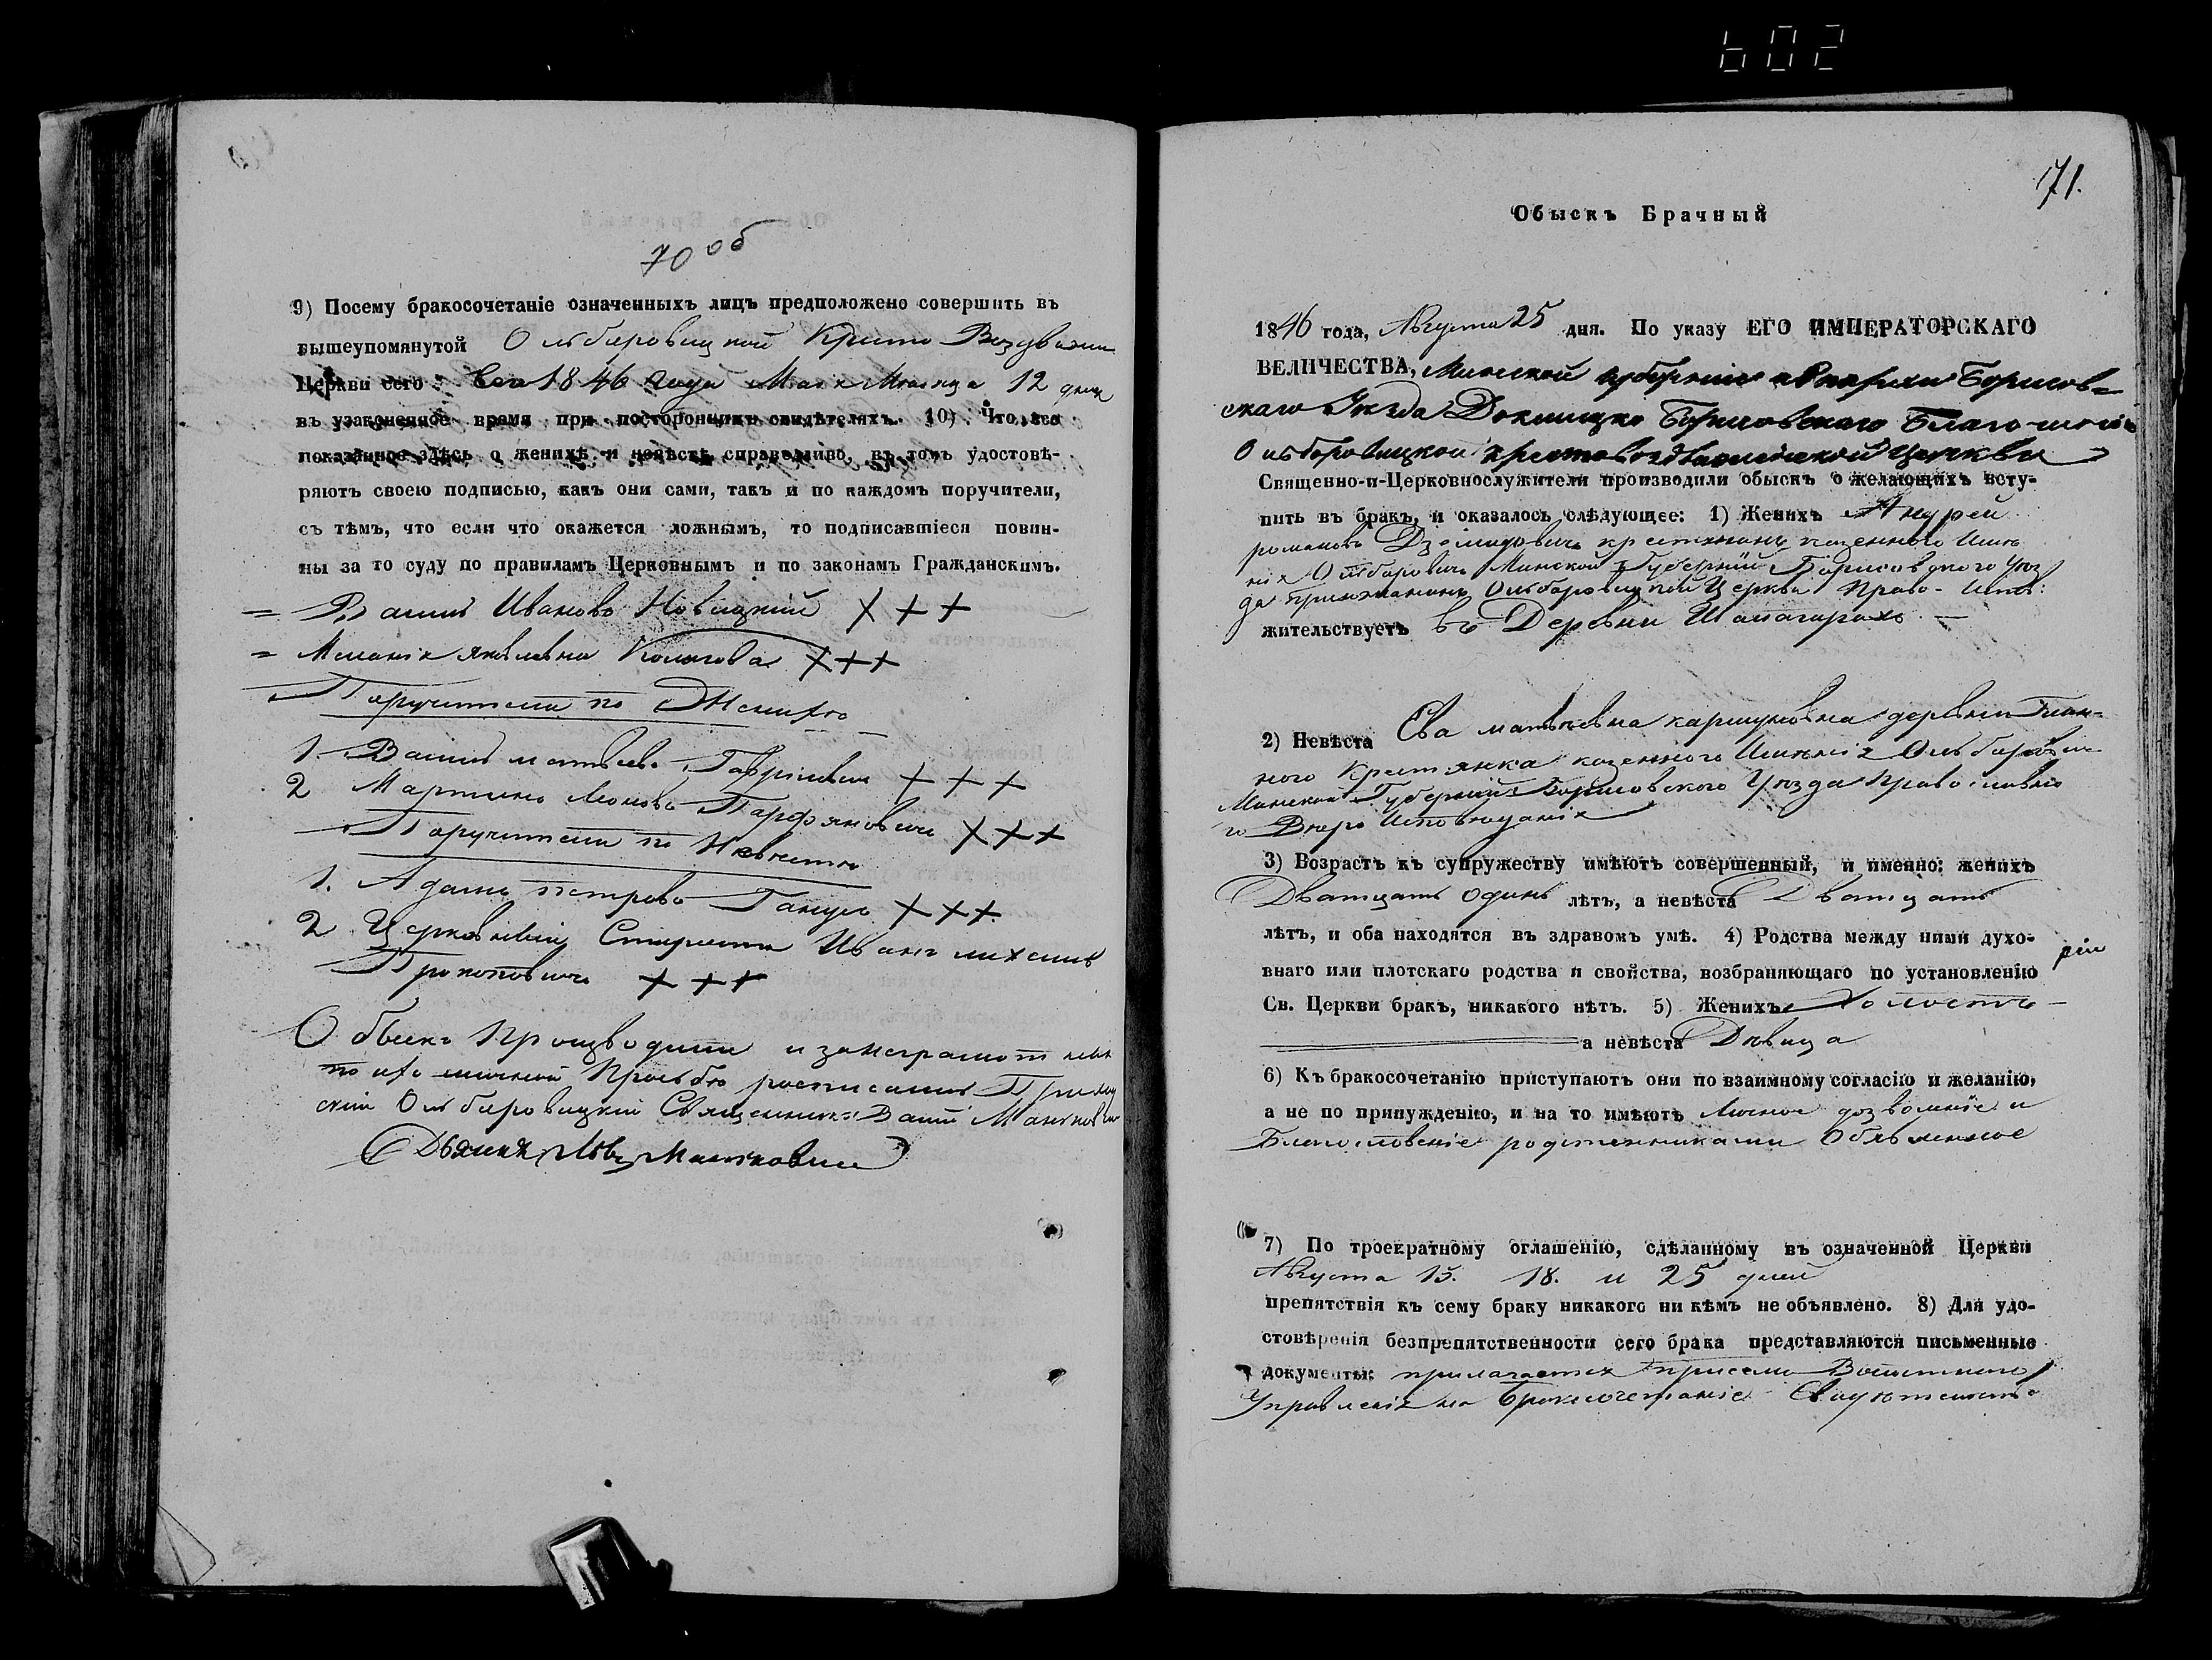 602
70 об
9) Посему бракосочетаніе означенныхъ лицъ предположено совершить въ
вышеупомянутой Ольбаровицкой Кресто Воздвижен
Церкви сего 1846 года Мая Месяца 12 дня
въ узаконенное время при постороннихъ свидѣтеляхъ. 10) Что все
показанное здѣсь о женихѣ и невѣстѣ справедливо, въ томъ удостовѣ-
ряютъ своею подписью, какъ они сами, такъ и по каждомъ поручители,
съ тѣмъ, что если что окажется ложнымъ, то подписавшіеся повин-
ны за то суду по правиламъ Церковнымъ и по законамъ Гражданскимъ.
= Василь Ивановъ Новицкій + + +
= Меланія Яковлевна +++
Поручители по Женихѣ
1. Василь Матвѣевъ + + +
2 Мартинъ Леоновъ Парфяновичъ + + +
Поручители по Невестѣ
1. Адамъ Петровъ + + +
2 Церковный Староста Иванъ
Прокоповичъ + + +
Обыскъ Производили и за неграмотныхъ
по ихъ личной Прозьбѣ росписались Приход
скій Ольбаровицкій Священникъ
71.
Обыскъ Брачный
1846 года, Августа 25 дня. По указу ЕГО ИМПЕРАТОРСКАГО
ВЕЛИЧЕСТВА, Минской губерніи и Епархіи Борисов-
скаго Уезда Докшицко Борисовского Благочинія
Ольбаровицкой Крестовоздвиженской Церкви
Священно-и-Церковнослужители производили обыскъ о желающихъ всту-
пить въ бракъ, и оказалось слѣдующее: 1) Женихъ Андрей
романовъ крестянинъ казенного Име
нія Ольбаровичъ Минской Губерніи Борисовского Уез
да прихожанинъ Ольбаровицкой Церкви Право- Испо:
жительствуетъ въ Деревни
2) Невѣста Ева матвеевна деревни
ного Крестянка казенного Именія Ольбарович
Минской Губерніи Борисовского Уезда Православно
го Вероисповеданія
3) Возрастъ къ супружеству имѣютъ совершенный, и именно: женихъ
Дватцать одинъ лѣтъ, а невѣста Дватцать
лѣтъ, и оба находятся въ здравомъ умѣ. 4) Родства между ними духо-
внаго или плотскаго родства и свойства, возбраняющаго по установленію
Св. Церкви бракъ, никакого нѣтъ. 5) Женихъ Холостъ
а невѣста Девица
6) Къ бракосочетанію приступаютъ они по взаимному согласію и желанію,
а не по принужденію, и на то имѣютъ Личное дозволеніе и
Благословеніе родственниками Объявленное
7) По троекратному оглашенію, сдѣланному въ означенной Церкви
Августа 15. 18. и 25 дней
препятствія къ сему браку никакого ни кѣмъ не объявлено. 8) Для удо-
стовѣренія безпрепятственности сего брака представляются письменные
документы: прилагается при семъ
Управленія на бракосочетаніе Свидетельство